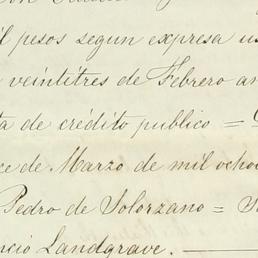 il pesos segun expresa us
veintitres de Febrero an
ta de crédito publico =
ce de Marzo de mil ochoc
Pedro de Solorzano = S
ncio Landgrave.